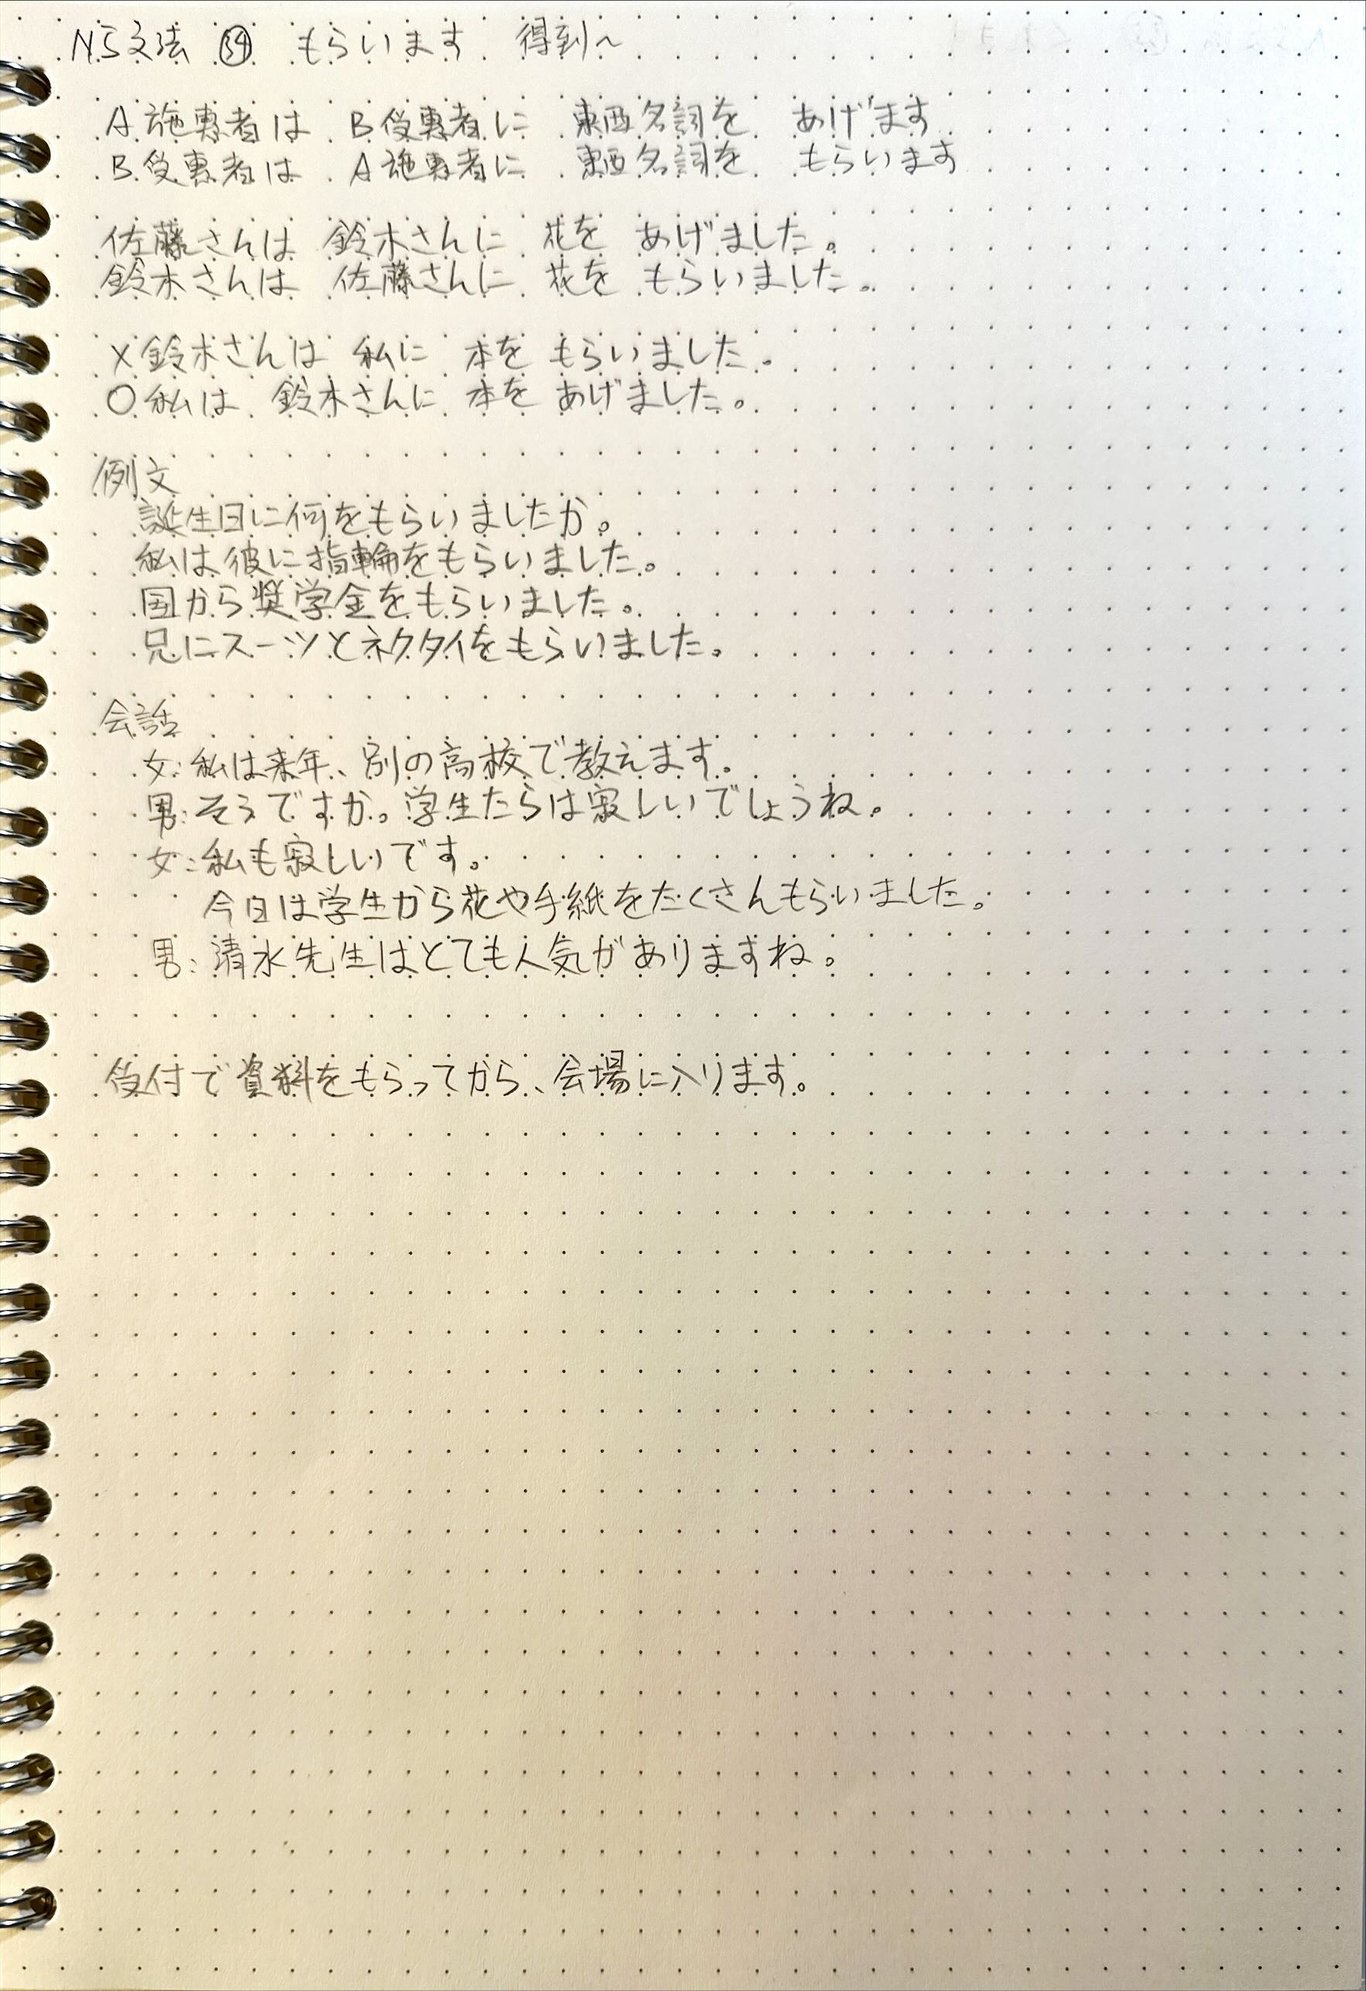 N5文法 ㊴ もらいます 得到～
A施惠者は B受惠者に 東西名詞を あげます
B受惠者は A施惠者に 東西名詞を もらいます
佐藤さんは 鈴木さんに 花を あげました。
鈴木さんは 佐藤さんに 花を もらいました。
×鈴木さんは 私に 本を もらいました。
○私は 鈴木さんに 本を あげました。
例文
誕生日に何をもらいましたか。
私は彼に指輪をもらいました。
国から奨学金をもらいました。
兄にスーツとネクタイをもらいました。
会話
女:私は来年、別の高校で教えます。
男:そうですか。学生たちは寂しいでしょうね。
女:私も寂しいです。
今日は学生から花や手紙をたくさんもらいました。
男:清水先生はとても人気がありますね。
受付で資料をもらってから、会場に入ります。